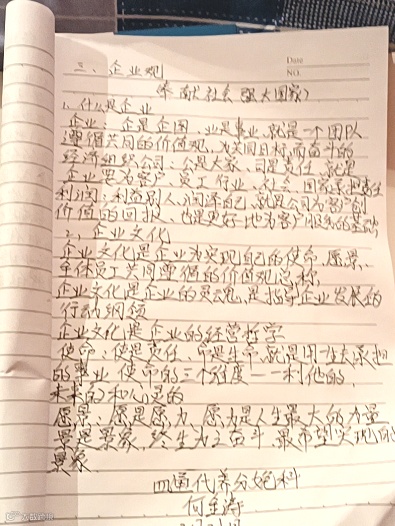 Date
NO.
三、企业观
(奉献社会 强大国家)
1、什么是企业
企业:企是企图,业是事业,就是一个团队
遵循共同的价值观,为共同目标而奋斗的
经济组织,公司:公是大家、司是责任,就是
企业要为客户、员工、行业、社会、国家承担责任
利润:利益别人,润泽自己,就是公司为客户创
价值的回报、也是更好地为客户服务的基础
2、企业文化
企业文化是企业为实现自己的使命、愿景、
全体员工共同遵循的价值观总称
企业文化是企业的灵魂,是指导企业发展的
行动纲领
企业文化是企业的经营哲学
使命:使是责任、命是生命,就是用生去承担
的事业 使命的三个维度——利他的、
未来的和心灵的
愿景:愿是愿力、愿力是人生最大的力量
景是景象,终生为之奋斗、最希望实现的
景象
四通代养分公司
何